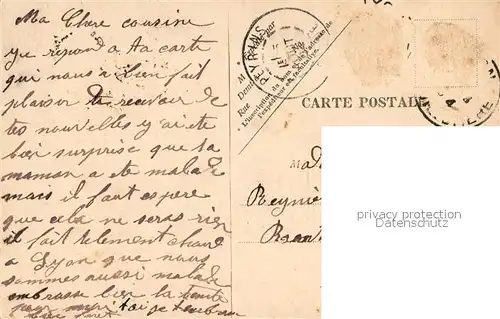 Ma Chere cousine
ye repond a ta carte
qui nous a bien fait
plaisir de recevoir de
tes nouvelles y ai ete
bien surprise que ta
maman a ete malade
mais il faut espere
que cela ne seras rien
il fait telement chaud
a Lyon que nous
sommes aussi malade
embrasse bien la tante
pour
PEYRINS
M
Rue
* L'inscription du nom et de l'adresse de
l'expéditeur est facultative.
CARTE POSTALE
Mad
Reyniè
privacy protection
Datenschutz